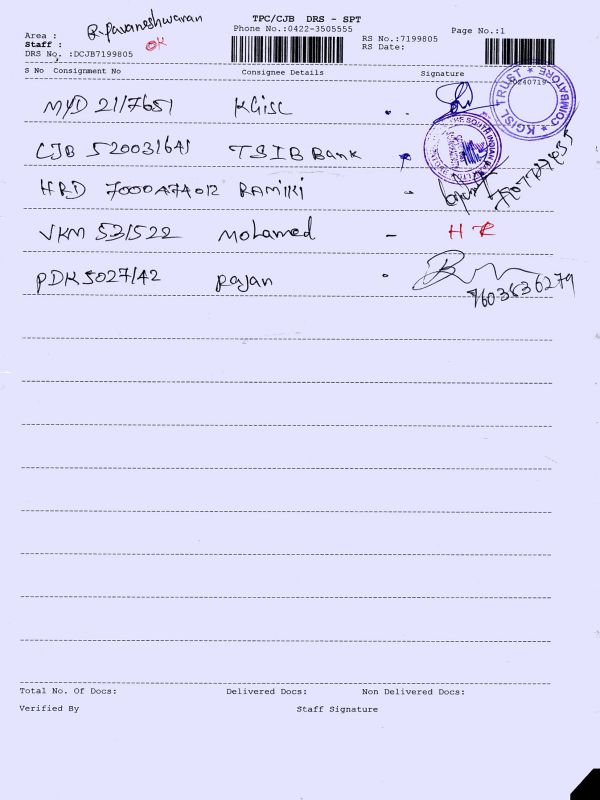 TPC/CJB DRS - SPT
Phone No.:0422-3505555
Page No.:1
Area :
R. Pavaneshwaran
Staff :
OK
RS No.:7199805
DRS No. :DCJB7199805
RS Date:
S No Consignment No Consignee Details Signature
240719
MYD 2117651 KGISL
KGISL TRUST * COIMBATORE *
CJB 520031641 TSIB Bank
THE SOUTH INDIAN BANK LTD
HRD 7000A74012 RAMIKI
VKM 531522 Mohamed - H R
PDK 5027142 Rajan
7603836279
Total No. Of Docs: Delivered Docs: Non Delivered Docs:
Verified By Staff Signature